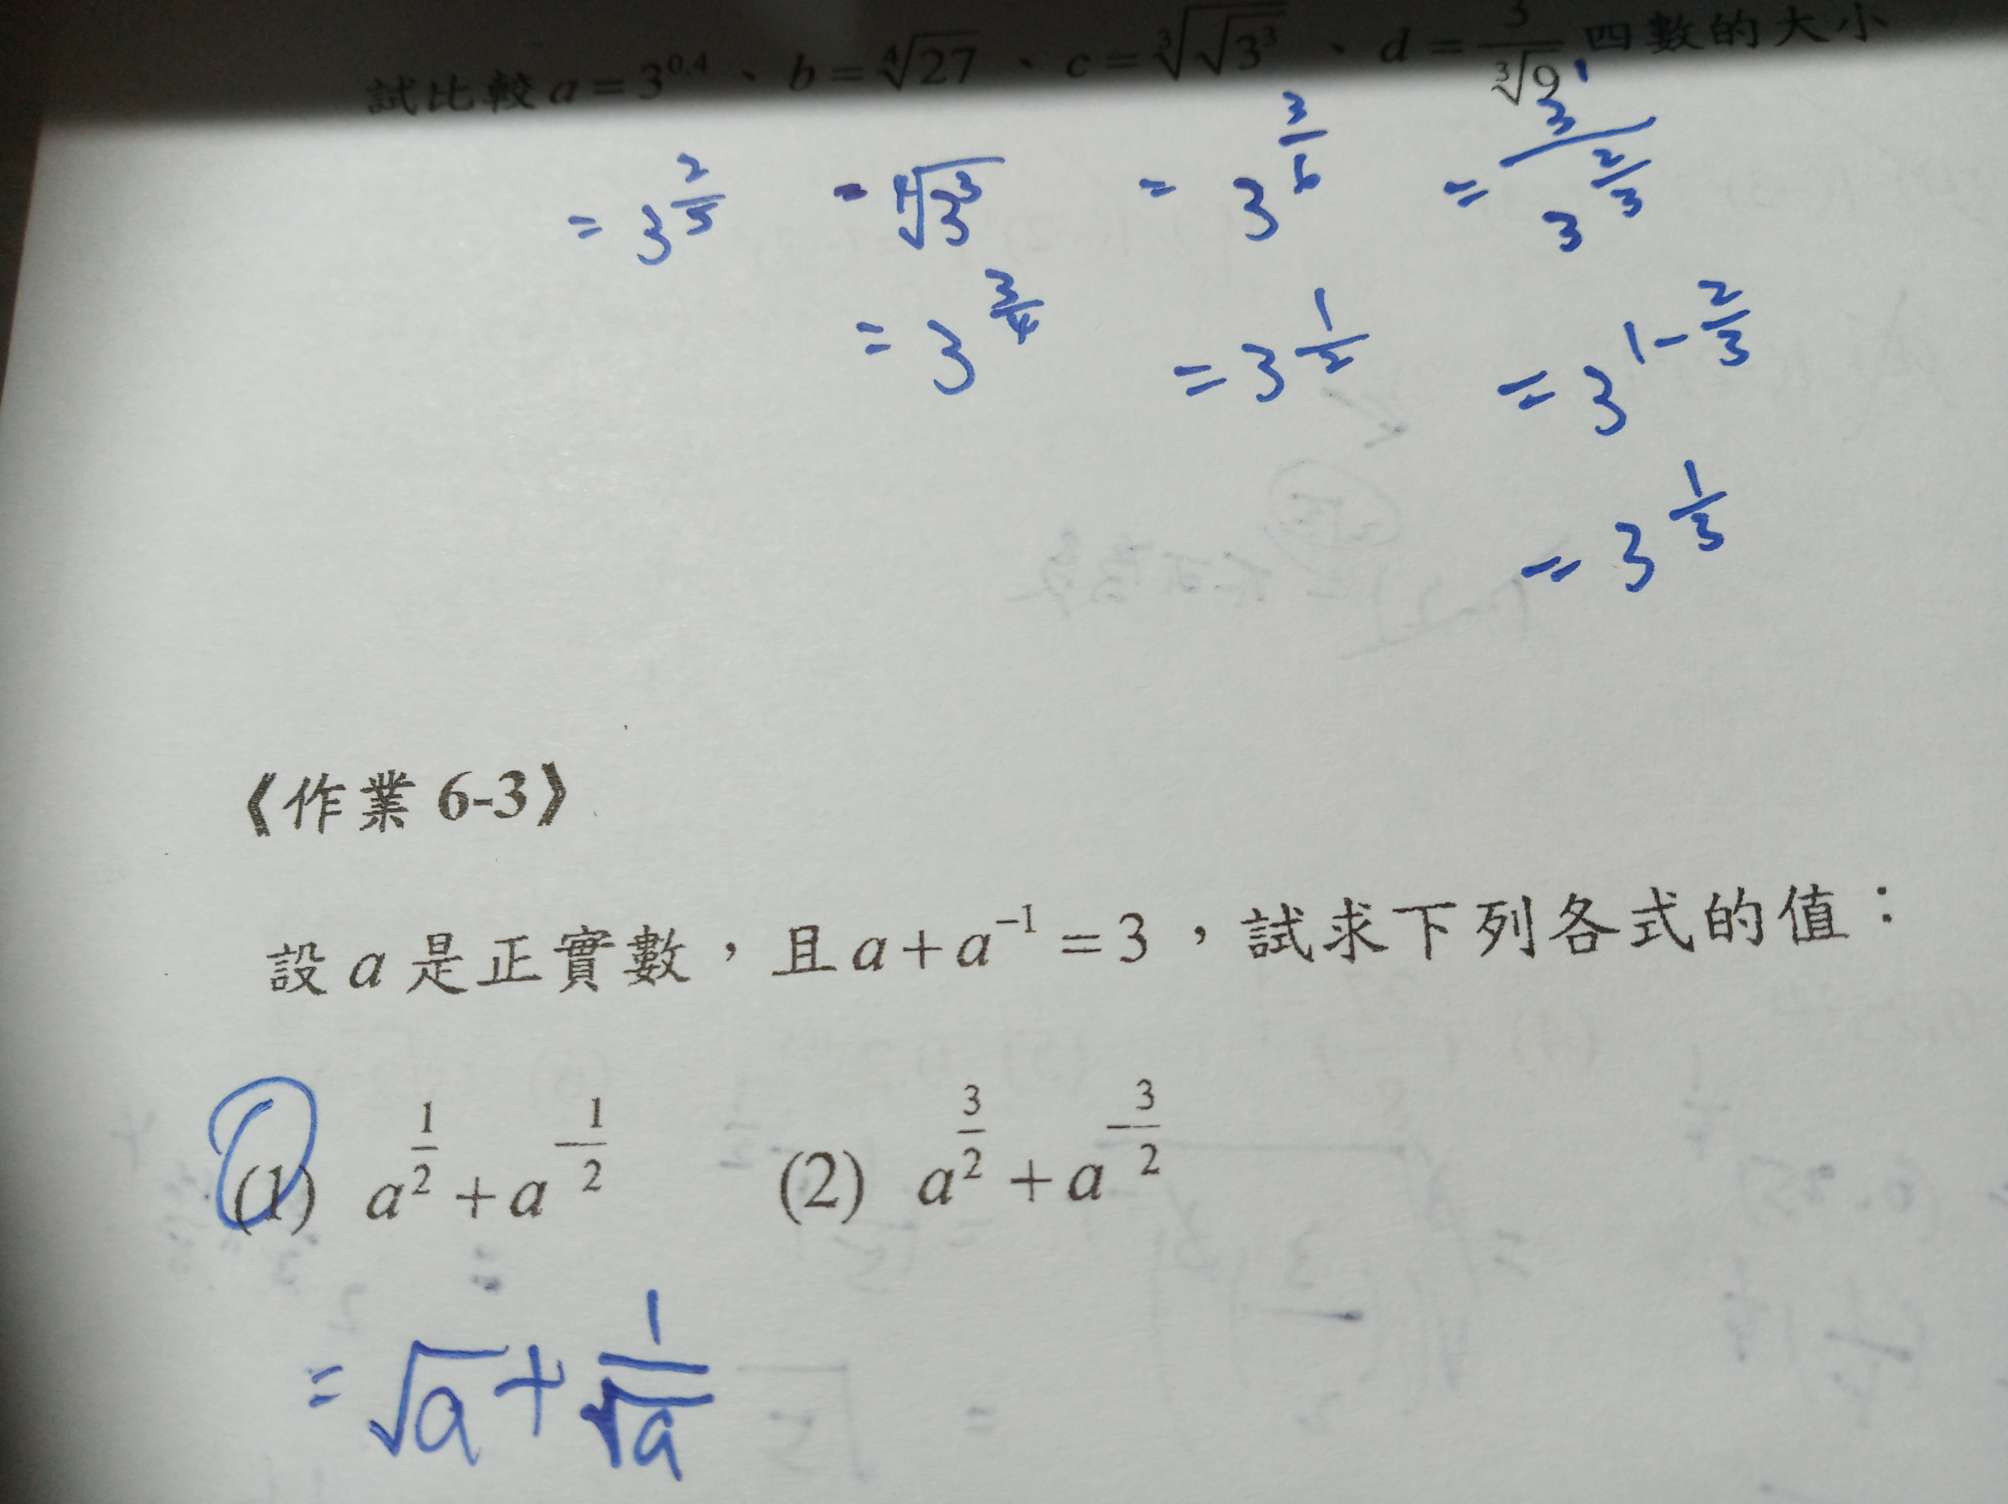 試比較 a = 3^{0.4} 、 b = \sqrt[4]{27} 、 c = \sqrt[3]{\sqrt{3^3}} 、 d = \frac{3}{\sqrt[3]{9}} 四數的大小
= 3^{\frac{2}{5}} = \sqrt[4]{3^3} = 3^{\frac{3}{6}} = \frac{3^1}{3^{\frac{2}{3}}}
= 3^{\frac{3}{4}} = 3^{\frac{1}{2}} = 3^{1-\frac{2}{3}}
= 3^{\frac{1}{3}}
《作業 6-3》
設 a 是正實數，且 a + a^{-1} = 3，試求下列各式的值：
(1) a^{\frac{1}{2}} + a^{-\frac{1}{2}} (2) a^{\frac{3}{2}} + a^{-\frac{3}{2}}
= \sqrt{a} + \frac{1}{\sqrt{a}}